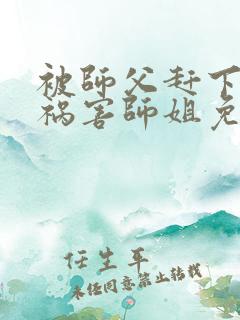 被師父赶下
祸害師姐免
任生平
未经同意禁止转载